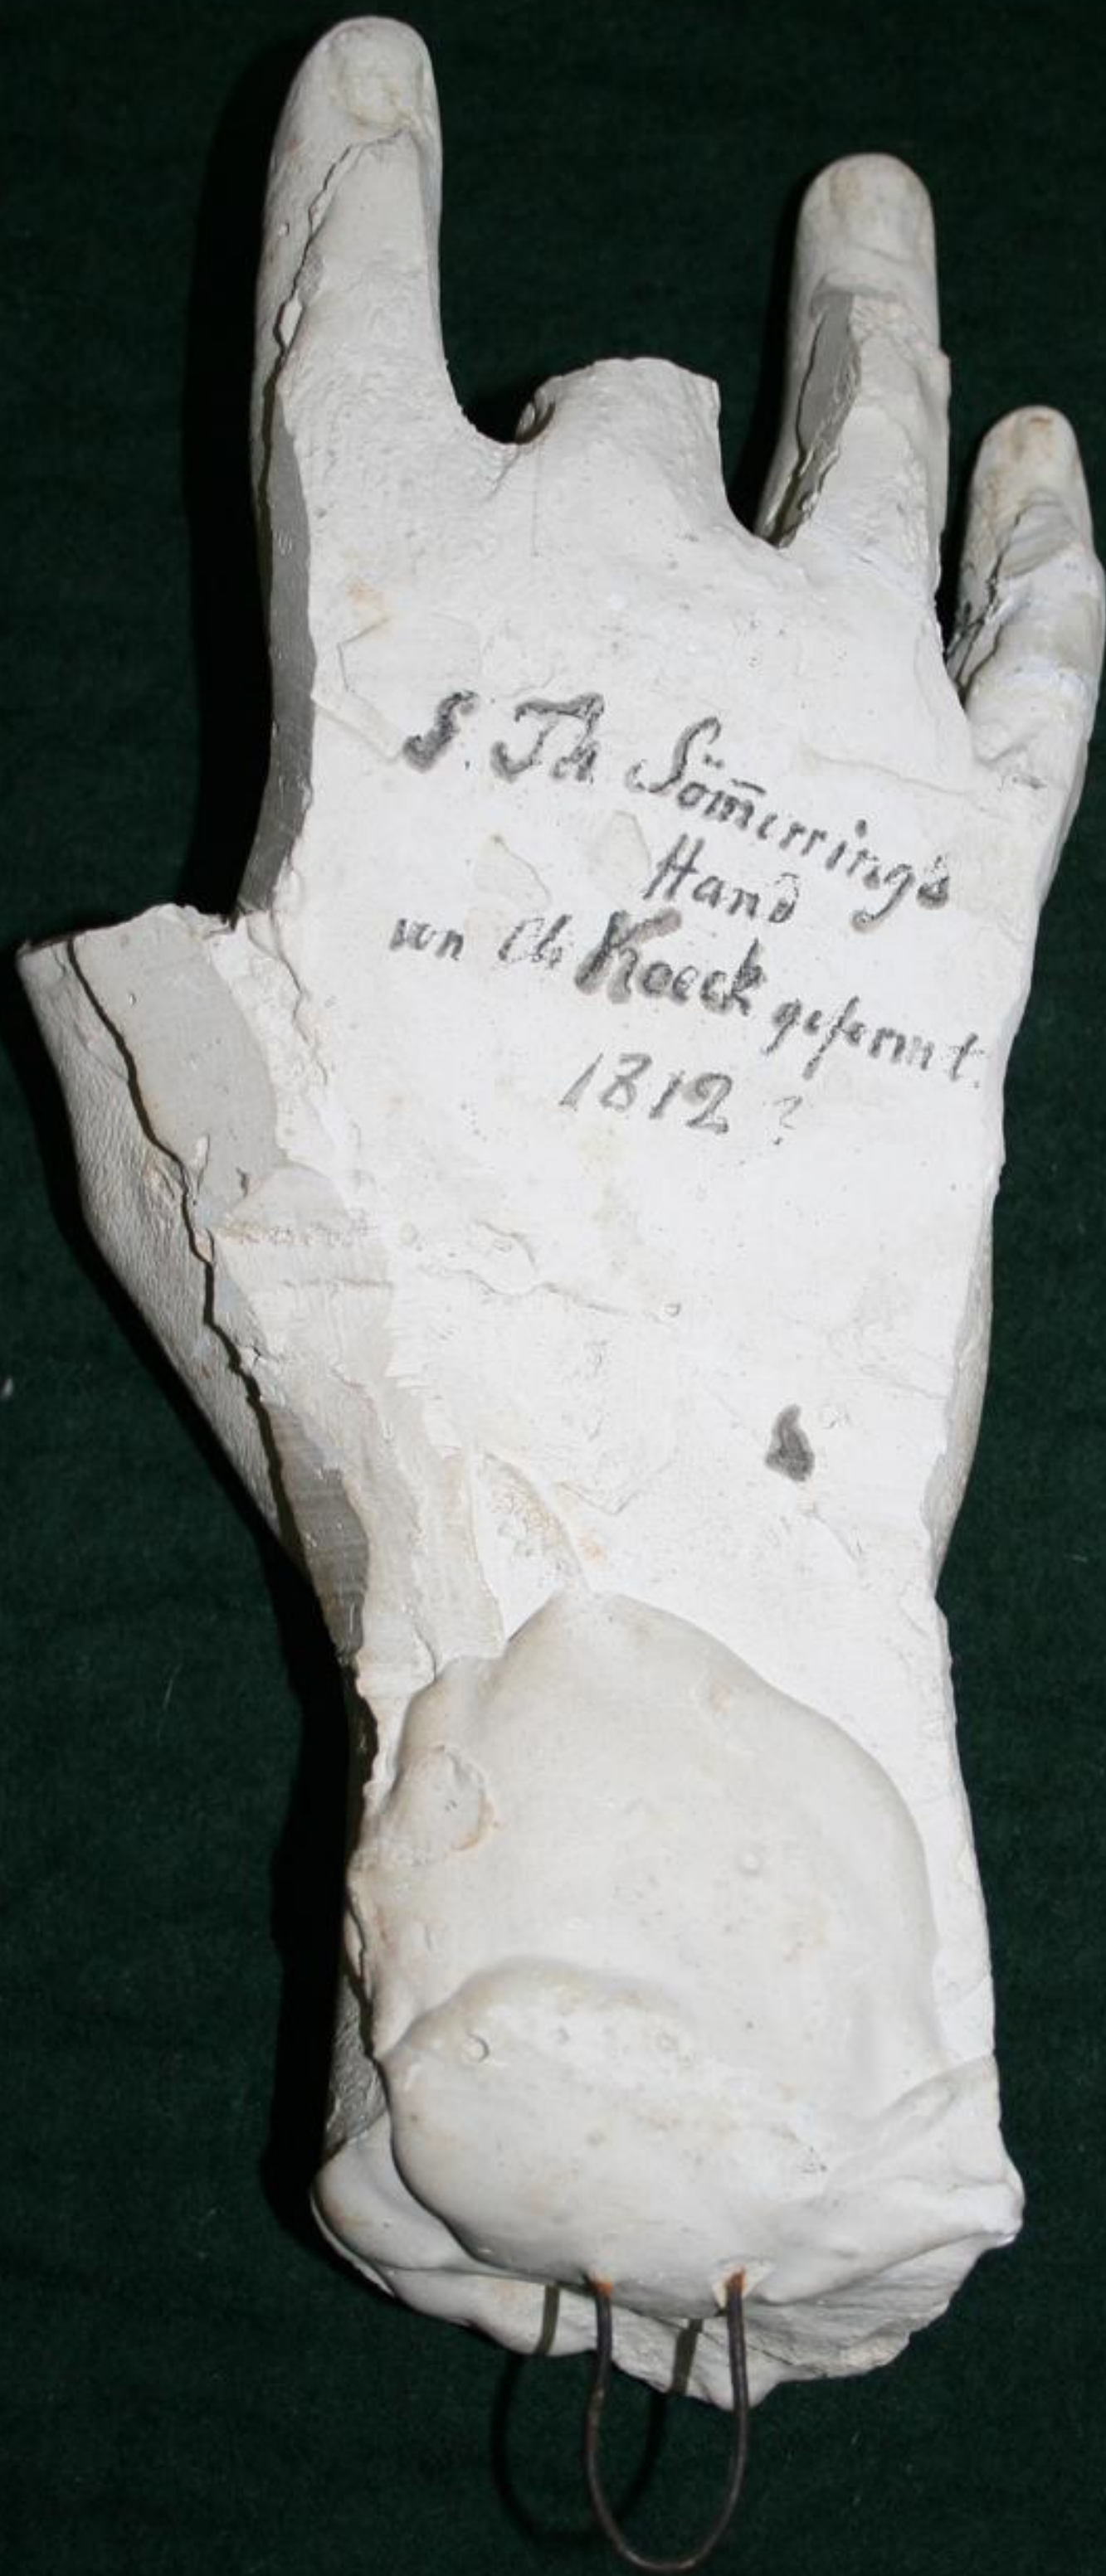 S. Th Söm̄erring's
Hand
von Ch Koeck geformt.
1812 ?